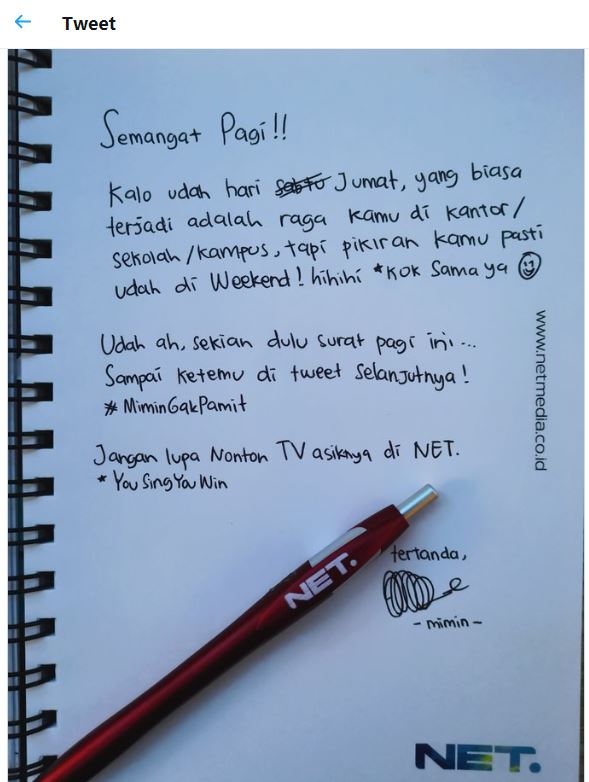 Tweet
Semangat Pagi!!
Kalo udah hari Sabtu Jumat, yang biasa
terjadi adalah raga kamu di kantor/
sekolah/kampus, tapi pikiran kamu pasti
udah di Weekend! hihihi *kok sama ya
Udah ah, sekian dulu surat pagi ini...
Sampai ketemu di tweet selanjutnya!
#MiminGakPamit
Jangan lupa Nonton TV asiknya di NET.
*YouSingYouWin
www.netmedia.co.id
NET.
tertanda,
-mimin-
NET.